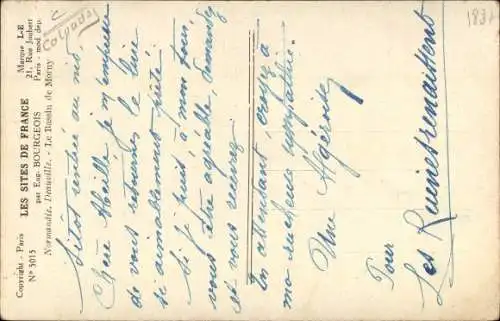 C
Calvados
183
Marque L-E
21, Rue Joubert
Paris - mod. dép.
LES SITES DE FRANCE
par Eug. BOURGEOIS
Normandie. Deauville. - Le Bassin de Morny
Copyright - Paris
N° 5015
Sitôt rentrée au nid,
Chère Abeille je m'empresse
de vous retourner le livre
si aimablement prêté
Si je puis à mon tour,
vous être agréable, demandez
et vous recevrez
En attendant, croyez à
ma lucheuse sympathie.
Une Algéroise
Pour
Les Ruines renaissent